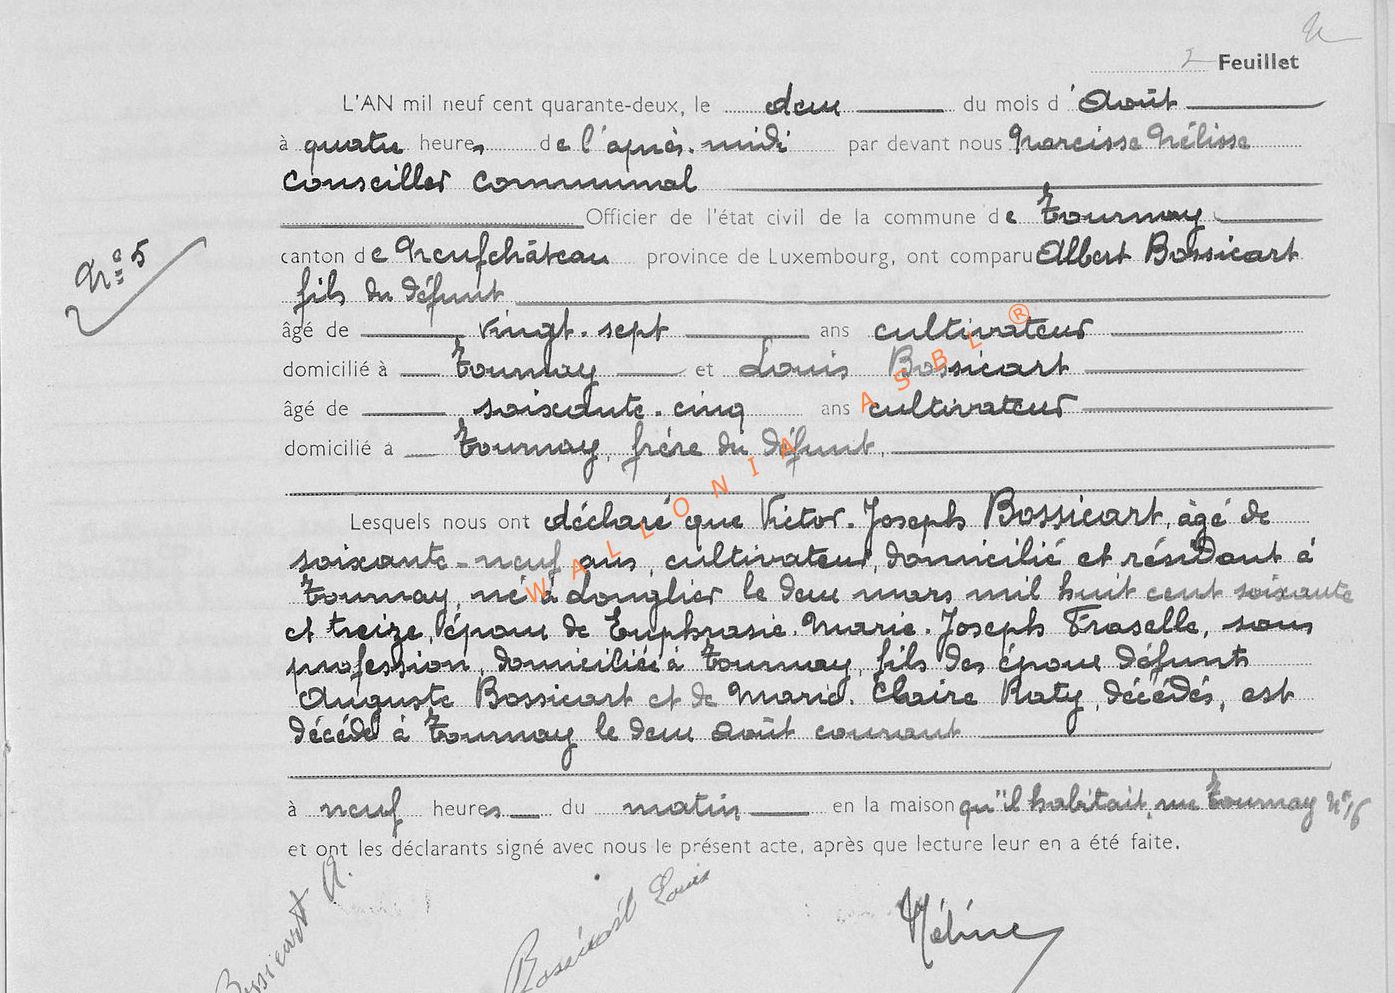 2 Feuillet
L'AN mil neuf cent quarante-deux, le deux du mois d'Août
à quatre heures de l'après-midi par devant nous Narcisse Nélisse
Conseiller Communal
Officier de l'état civil de la commune de Tournay
canton de Neufchâteau province de Luxembourg, ont comparu Albert Bossicart
fils du défunt
âgé de vingt-sept ans cultivateur
domicilié à Tournay et Louis Bossicart
âgé de soixante-cinq ans cultivateur
domicilié à Tournay, frère du défunt,
Lesquels nous ont déclaré que Victor-Joseph Bossicart, âgé de
soixante-neuf ans, cultivateur, domicilié et résidant à
Tournay, né à Longlier le deux mars mil huit cent soixante
et treize, époux de Euphrasie-Marie-Joseph Fraselle, sans
profession, domiciliée à Tournay, fils des époux défunts
Auguste Bossicart et de Marie-Claire Raty, décédés, est
décédé à Tournay le deux août courant
à neuf heures du matin en la maison qu'il habitait, rue Tournay N°16
et ont les déclarants signé avec nous le présent acte, après que lecture leur en a été faite.
N° 5
Bossicart A.
Bossicart Louis
WALLONIA ASBL ®